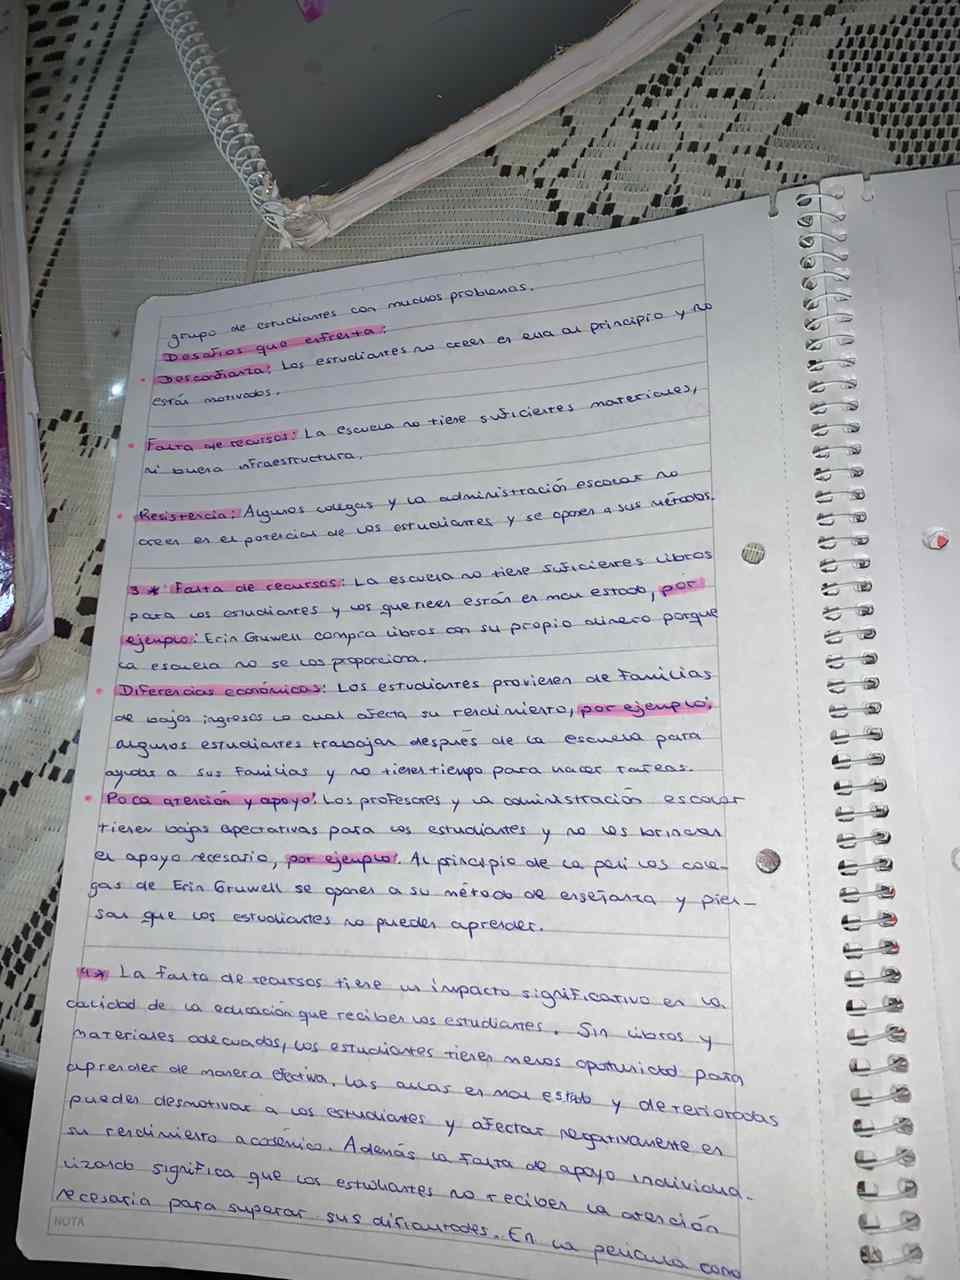 grupo de estudiantes con muchos problemas.
Desafíos que enfrenta:
• Desconfianza: Los estudiantes no creen en ella al principio y no
están motivados.
• Falta de recursos: La escuela no tiene suficientes materiales,
ni buena infraestructura.
• Resistencia: Algunos colegas y la administración escolar no
creen en el potencial de los estudiantes y se oponen a sus métodos.
3* Falta de recursos: La escuela no tiene suficientes libros
para los estudiantes y los que tienen están en mal estado, por
ejemplo: Erin Gruwell compra libros con su propio dinero porque
la escuela no se los proporciona.
• Diferencias económicas: Los estudiantes provienen de familias
de bajos ingresos lo cual afecta su rendimiento, por ejemplo:
algunos estudiantes trabajan después de la escuela para
ayudar a sus familias y no tienen tiempo para hacer tareas.
• Poca atención y apoyo: Los profesores y la administración escolar
tienen bajas apectativas para los estudiantes y no les brindan
el apoyo necesario, por ejemplo: Al principio de la peli los cole-
gas de Erin Gruwell se oponen a su método de enseñanza y pien-
san que los estudiantes no pueden aprender.
4* La falta de recursos tiene un impacto significativo en la
calidad de la educación que reciben los estudiantes. Sin libros y
materiales adecuados, los estudiantes tienen menos oportunidad para
aprender de manera efectiva, las aulas en mal estado y deterioradas
pueden desmotivar a los estudiantes y afectar negativamente en
su rendimiento académico. Además la falta de apoyo individua-
lizado significa que los estudiantes no reciben la atención
necesaria para superar sus dificultades. En la película como
NOTA